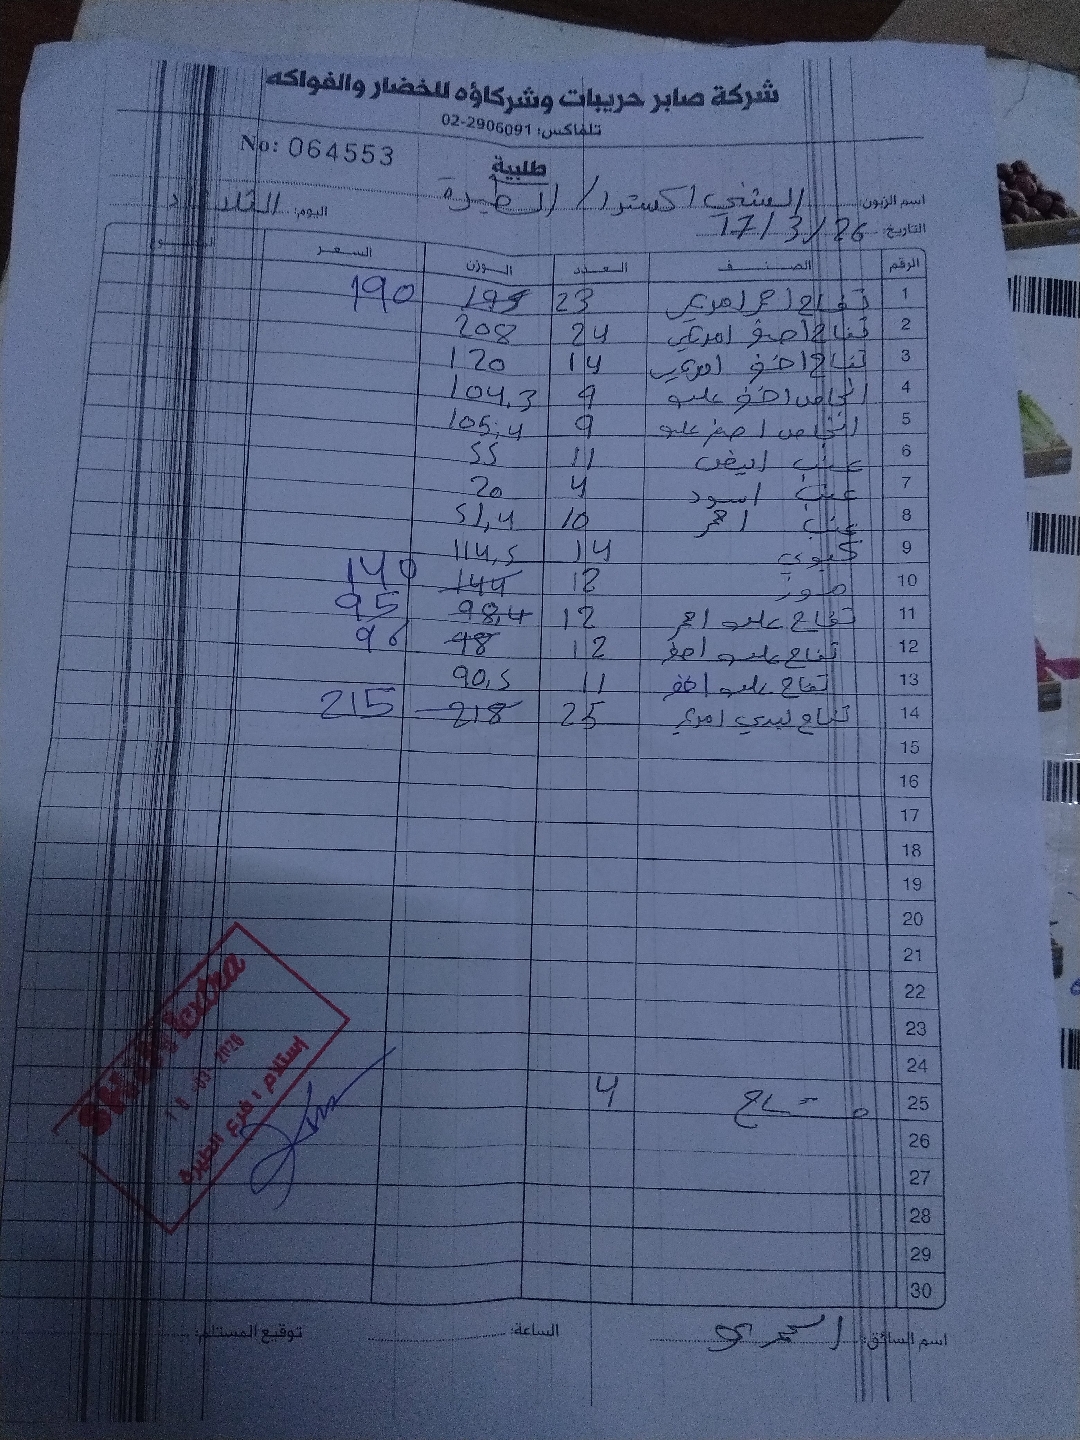 شركة صابر حريبات وشركاؤه للخضار والفواكه
تلفاكس: 02-2906091
No: 064553
طلبية
اسم الزبون: الشني اكسترا / الطيرة
اليوم: الثلاثاء
التاريخ: 17/3/26
الرقم الصنف العدد الوزن السعر
1 تفاح احمر امريكي 23 195 190
2 تفاح اصفر امريكي 24 208
3 تفاح اخضر امريكي 14 120
4 انجاص اخضر علبه 9 104,3
5 انجاص احمر علبه 9 105,4
6 عنب ابيض 11 55
7 عنب اسود 4 20
8 عنب احمر 10 51,4
9 كيوي 14 114,5
10 موز 12 144 140
11 تفاح علبه احمر 12 98,4 95
12 تفاح علبه اصفر 12 98 96
13 تفاح علبه اخضر 11 90,5
14 تفاح ليدي امريكي 25 218 215
15
16
17
18
19
20
21
22
23
24
25 4
26
27
28
29
30
extra
2026
إستلام : فرع الطيرة
اسم السائق:
الساعة:
توقيع المستلم: